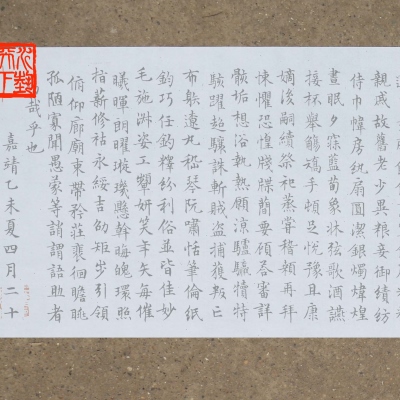 親戚故舊老少異粮妾御績紡
侍巾幃房紈扇圓潔銀燭煒煌
晝眠夕寐藍筍象牀弦歌酒讌
接杯舉觴矯手頓足悅豫且康
嫡後嗣續祭祀蒸嘗稽顙再拜
悚懼恐惶牋牒簡要顧答審詳
骸垢想浴執熱願涼驢騾犢特
駭躍超驤誅斬賊盜捕獲叛亡
布射遼丸嵇琴阮嘯恬筆倫紙
鈞巧任釣釋紛利俗並皆佳妙
毛施淑姿工顰妍笑年矢每催
曦暉朗曜璇璣懸斡晦魄環照
指薪修祜永綏吉劭矩步引領
俯仰廊廟束帶矜莊裵徊瞻眺
孤陋寡聞愚蒙等誚謂語助者
焉哉乎也
嘉靖乙未夏四月二十